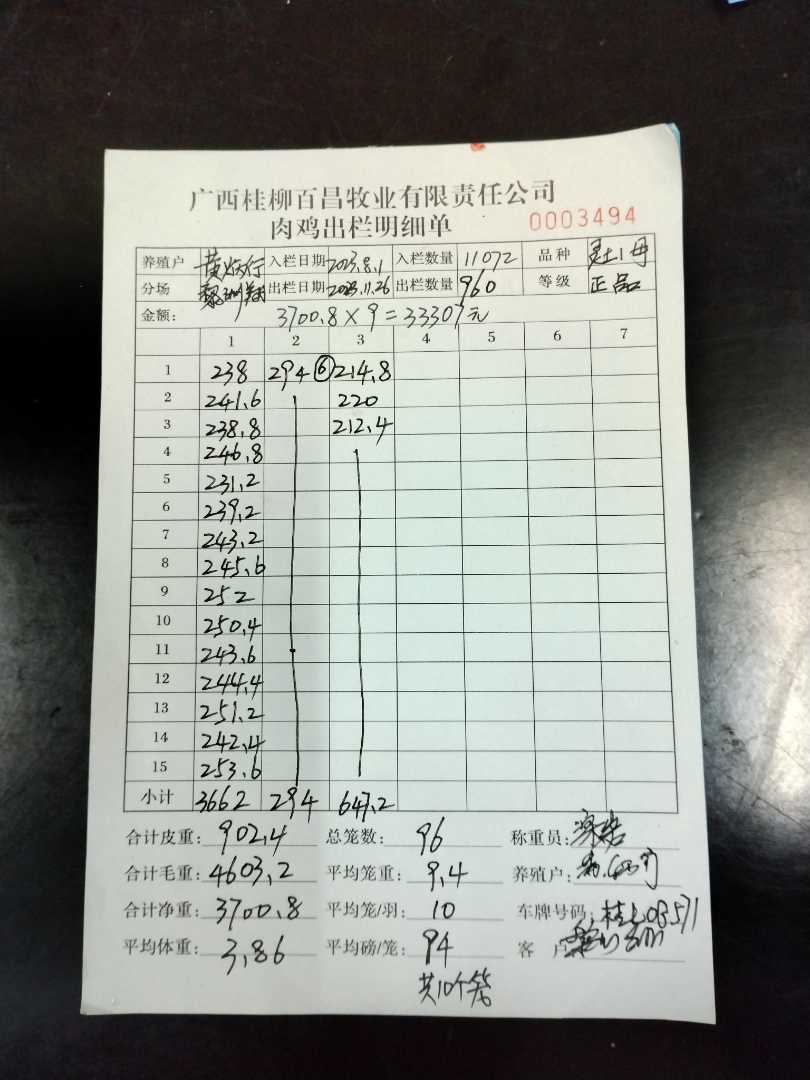 广西桂柳百昌牧业有限责任公司
肉鸡出栏明细单 0003494
养殖户 黄炳行 入栏日期 2023.8.1 入栏数量 11072 品种 土1母
分场 出栏日期 2023.11.26 出栏数量 960 等级 正品
金额: 3700.8×9=33307元
1 2 3 4 5 6 7
1 238 294 ⑥ 214.8
2 241.6 220
3 238.8 212.4
4 246.8
5 231.2
6 239.2
7 243.2
8 245.6
9 252
10 250.4
11 243.6
12 244.4
13 251.2
14 242.4
15 253.6
小计 3662 294 647.2
合计皮重: 902.4 总笼数: 96 称重员:
合计毛重: 4603.2 平均笼重: 9.4 养殖户:
合计净重: 3700.8 平均笼/羽: 10 车牌号码: 桂
平均体重: 3.86 平均磅/笼: 94 客户
共10个笼